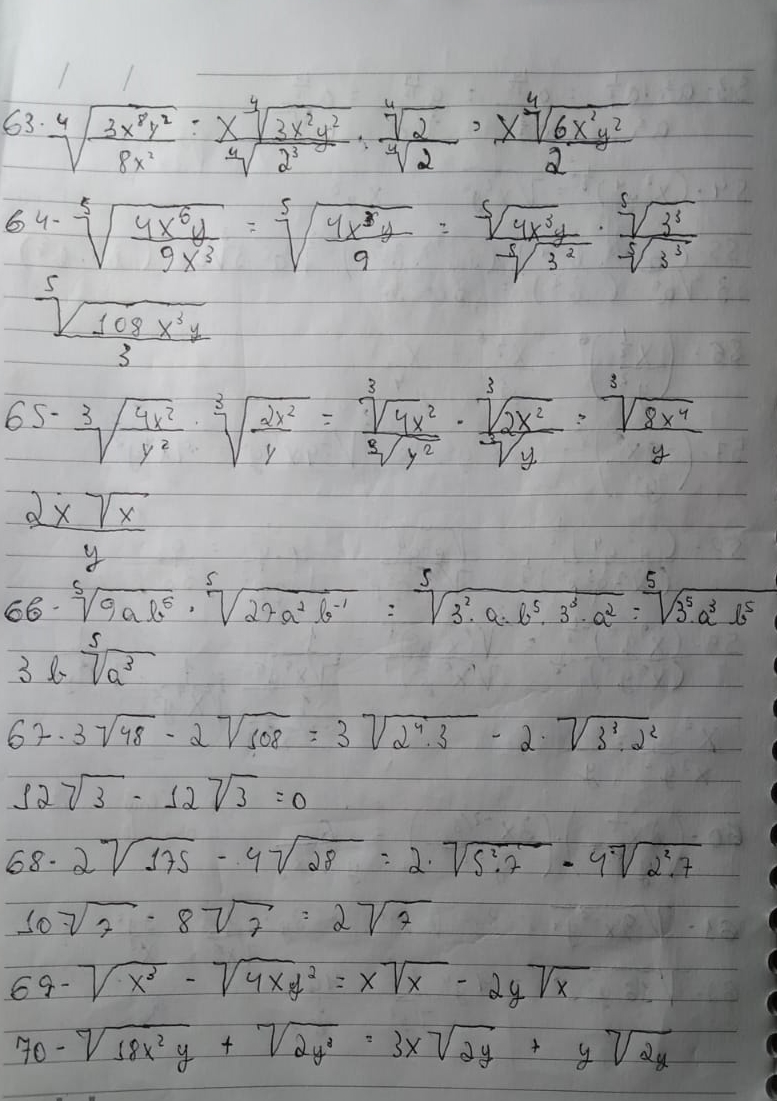 63. ⁴√(3x⁸y²/8x²) = x ⁴√(3x²y²)/⁴√(2³) . ⁴√2/⁴√2 = x ⁴√(6x²y²)/2
64- ⁵√(4x⁶y/9x³) = ⁵√(4x³y/9) = ⁵√(4x³y)/⁵√(3²) . ⁵√(3³)/⁵√(3³)
⁵√(108x³y)/3
65- ³√(4x²/y²) . ³√(2x²/y) = ³√(4x²)/³√(y²) . ³√(2x²)/³√y = ³√(8x⁴)/y
2x √x/y
66- ⁵√(9ab⁶) . ⁵√(27a²b⁻¹) = ⁵√(3².a.b⁵.3³.a²) = ⁵√(3⁵.a³b⁵)
3b ⁵√(a³)
67. 3√48 - 2√108 = 3√(2⁴.3) - 2.√(3³.2²)
12√3 - 12√3 = 0
68- 2√175 - 4√28 = 2.√(5².7) - 4√(2².7)
10√7 - 8√7 = 2√7
69- √(x³) - √(4xy²) = x√x - 2y√x
70- √(18x²y) + √(2y³) = 3x√(2y) + y√(2y)